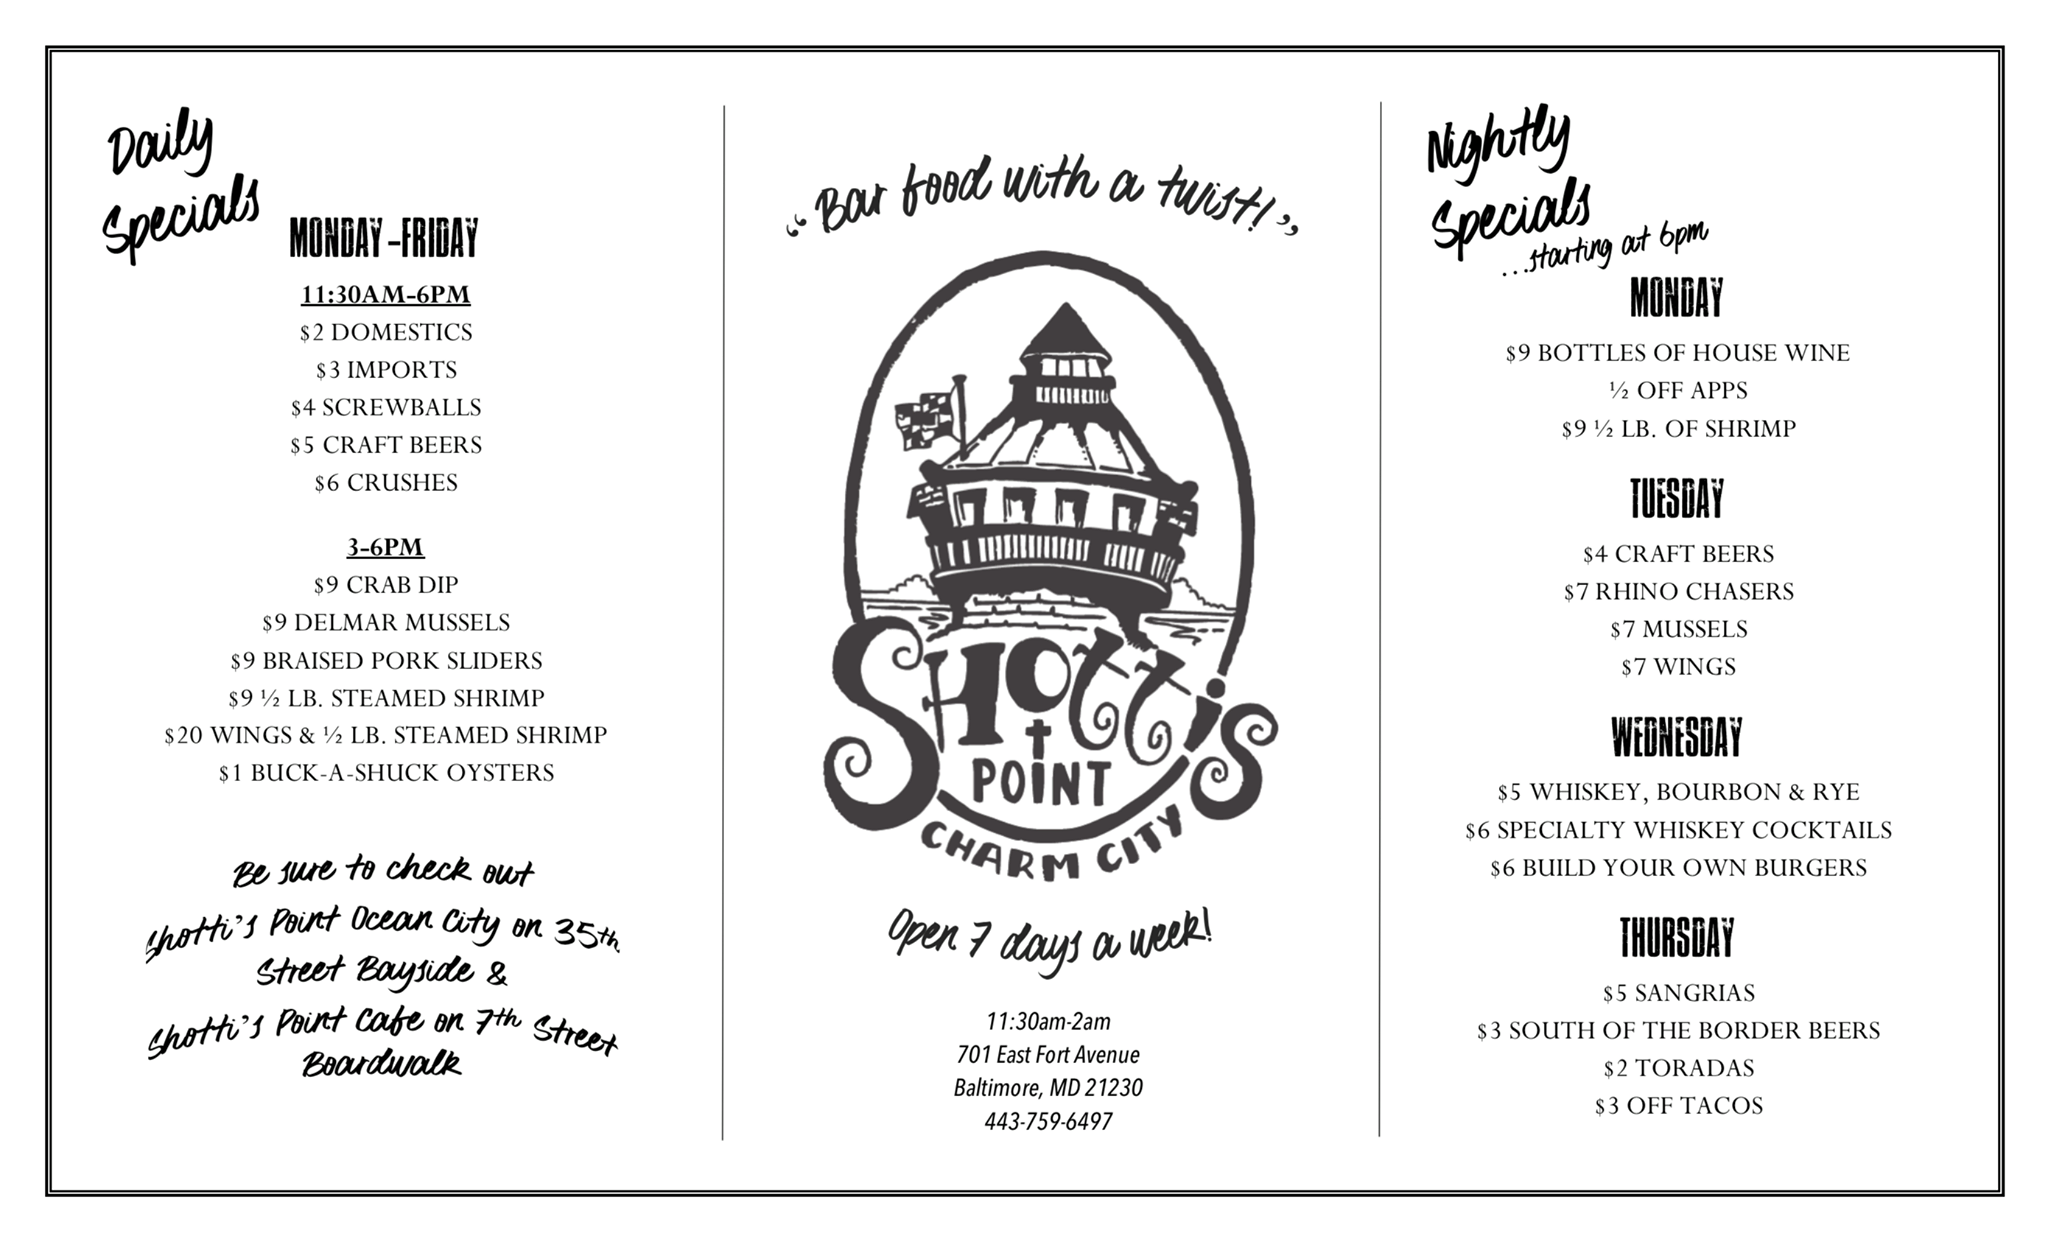 Daily
Specials
MONDAY-FRIDAY
11:30AM-6PM
$2 DOMESTICS
$3 IMPORTS
$4 SCREWBALLS
$5 CRAFT BEERS
$6 CRUSHES
3-6PM
$9 CRAB DIP
$9 DELMAR MUSSELS
$9 BRAISED PORK SLIDERS
$9 ½ LB. STEAMED SHRIMP
$20 WINGS & ½ LB. STEAMED SHRIMP
$1 BUCK-A-SHUCK OYSTERS
Be sure to check out
Shotti's Point Ocean City on 35th
Street Bayside &
Shotti's Point Cafe on 7th Street
Boardwalk
“Bar food with a twist!”
SHOTTI'S
POINT
CHARM CITY
Open 7 days a week!
11:30am-2am
701 East Fort Avenue
Baltimore, MD 21230
443-759-6497
Nightly
Specials
...starting at 6pm
MONDAY
$9 BOTTLES OF HOUSE WINE
½ OFF APPS
$9 ½ LB. OF SHRIMP
TUESDAY
$4 CRAFT BEERS
$7 RHINO CHASERS
$7 MUSSELS
$7 WINGS
WEDNESDAY
$5 WHISKEY, BOURBON & RYE
$6 SPECIALTY WHISKEY COCKTAILS
$6 BUILD YOUR OWN BURGERS
THURSDAY
$5 SANGRIAS
$3 SOUTH OF THE BORDER BEERS
$2 TORADAS
$3 OFF TACOS